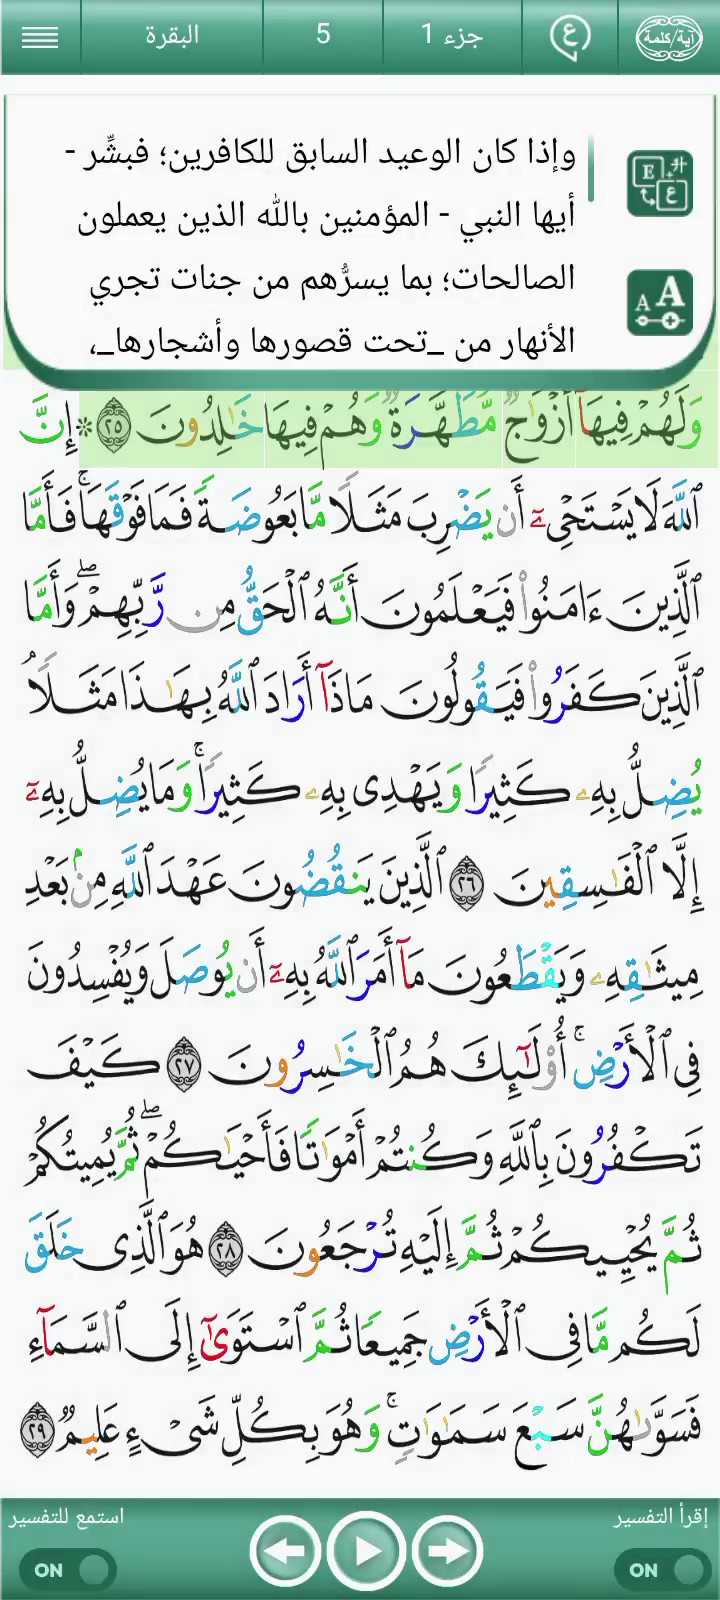 آية/كلمة ع جزء 1 5 البقرة
وإذا كان الوعيد السابق للكافرين؛ فبشِّر -
أيها النبي - المؤمنين بالله الذين يعملون
الصالحات؛ بما يسرُّهم من جنات تجري
الأنهار من _تحت قصورها وأشجارها_،
وَلَهُمْ فِيهَآ أَزْوَٰجٌ مُّطَهَّرَةٌ وَهُمْ فِيهَا خَٰلِدُونَ ٢٥ * إِنَّ
ٱللَّهَ لَا يَسْتَحْىِۦٓ أَن يَضْرِبَ مَثَلًا مَّا بَعُوضَةً فَمَا فَوْقَهَا ۚ فَأَمَّا
ٱلَّذِينَ ءَامَنُوا۟ فَيَعْلَمُونَ أَنَّهُ ٱلْحَقُّ مِن رَّبِّهِمْ ۖ وَأَمَّا
ٱلَّذِينَ كَفَرُوا۟ فَيَقُولُونَ مَاذَآ أَرَادَ ٱللَّهُ بِهَٰذَا مَثَلًا ۘ
يُضِلُّ بِهِۦ كَثِيرًا وَيَهْدِى بِهِۦ كَثِيرًا ۚ وَمَا يُضِلُّ بِهِۦٓ
إِلَّا ٱلْفَٰسِقِينَ ٢٦ ٱلَّذِينَ يَنقُضُونَ عَهْدَ ٱللَّهِ مِنۢ بَعْدِ
مِيثَٰقِهِۦ وَيَقْطَعُونَ مَآ أَمَرَ ٱللَّهُ بِهِۦٓ أَن يُوصَلَ وَيُفْسِدُونَ
فِى ٱلْأَرْضِ ۚ أُو۟لَٰٓئِكَ هُمُ ٱلْخَٰسِرُونَ ٢٧ كَيْفَ
تَكْفُرُونَ بِٱللَّهِ وَكُنتُمْ أَمْوَٰتًا فَأَحْيَٰكُمْ ۖ ثُمَّ يُمِيتُكُمْ
ثُمَّ يُحْيِيكُمْ ثُمَّ إِلَيْهِ تُرْجَعُونَ ٢٨ هُوَ ٱلَّذِى خَلَقَ
لَكُم مَّا فِى ٱلْأَرْضِ جَمِيعًا ثُمَّ ٱسْتَوَىٰٓ إِلَى ٱلسَّمَآءِ
فَسَوَّىٰهُنَّ سَبْعَ سَمَٰوَٰتٍ ۚ وَهُوَ بِكُلِّ شَىْءٍ عَلِيمٌ ٢٩
إقرأ التفسير استمع للتفسير
ON ON